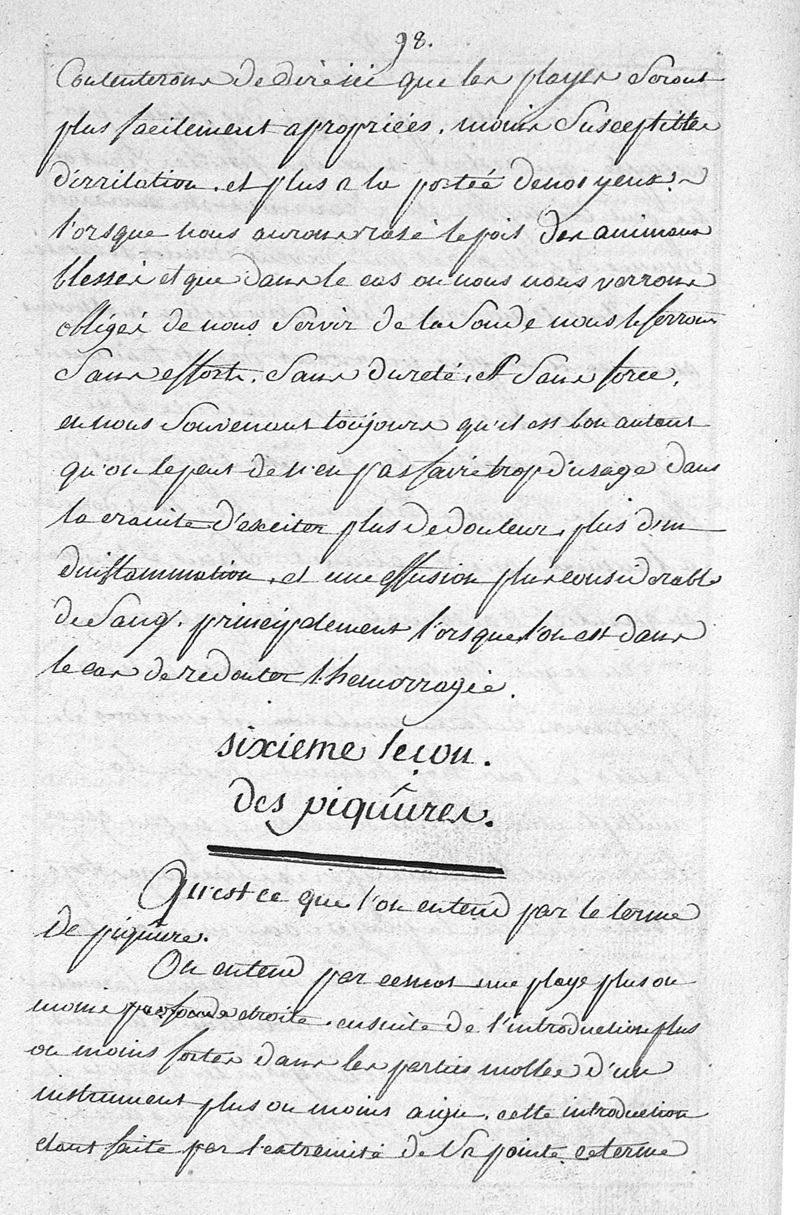 98.
Contenterons de dire ici que les playes Seront
plus facilement apropriées, moins Susceptibles
d'irritation, et plus a la portée de nos yeux
l'orsque nous aurons rasé le poil des animaux
blessés et que dans le cas ou nous nous verrons
obligés de nous Servir de la Sonde nous le ferrons
Sans efforts, Sans dureté, et Sans force,
en nous Souvenant toujours qu'il est bon autant
qu'on le peut de n'en pas faire trop d'usage dans
la crainte d'exciter plus de douleur, plus d'in
d'inflammation, et une effusion plus considerable
de Sang, principalement l'orsque l'on est dans
le cas de redouter l'hemorragie.
sixieme leçon.
des piquures.
Qu'est ce que l'on entend par le terme
de piquure.
On entend par ce mot une playe plus ou
moins profonde etroite, ensuite de l'introduction plus
ou moins forter dans les parties molles d'un
instrument plus ou moins aigu, cette introduction
etant faite par l'extremité de Sa pointe ce terme